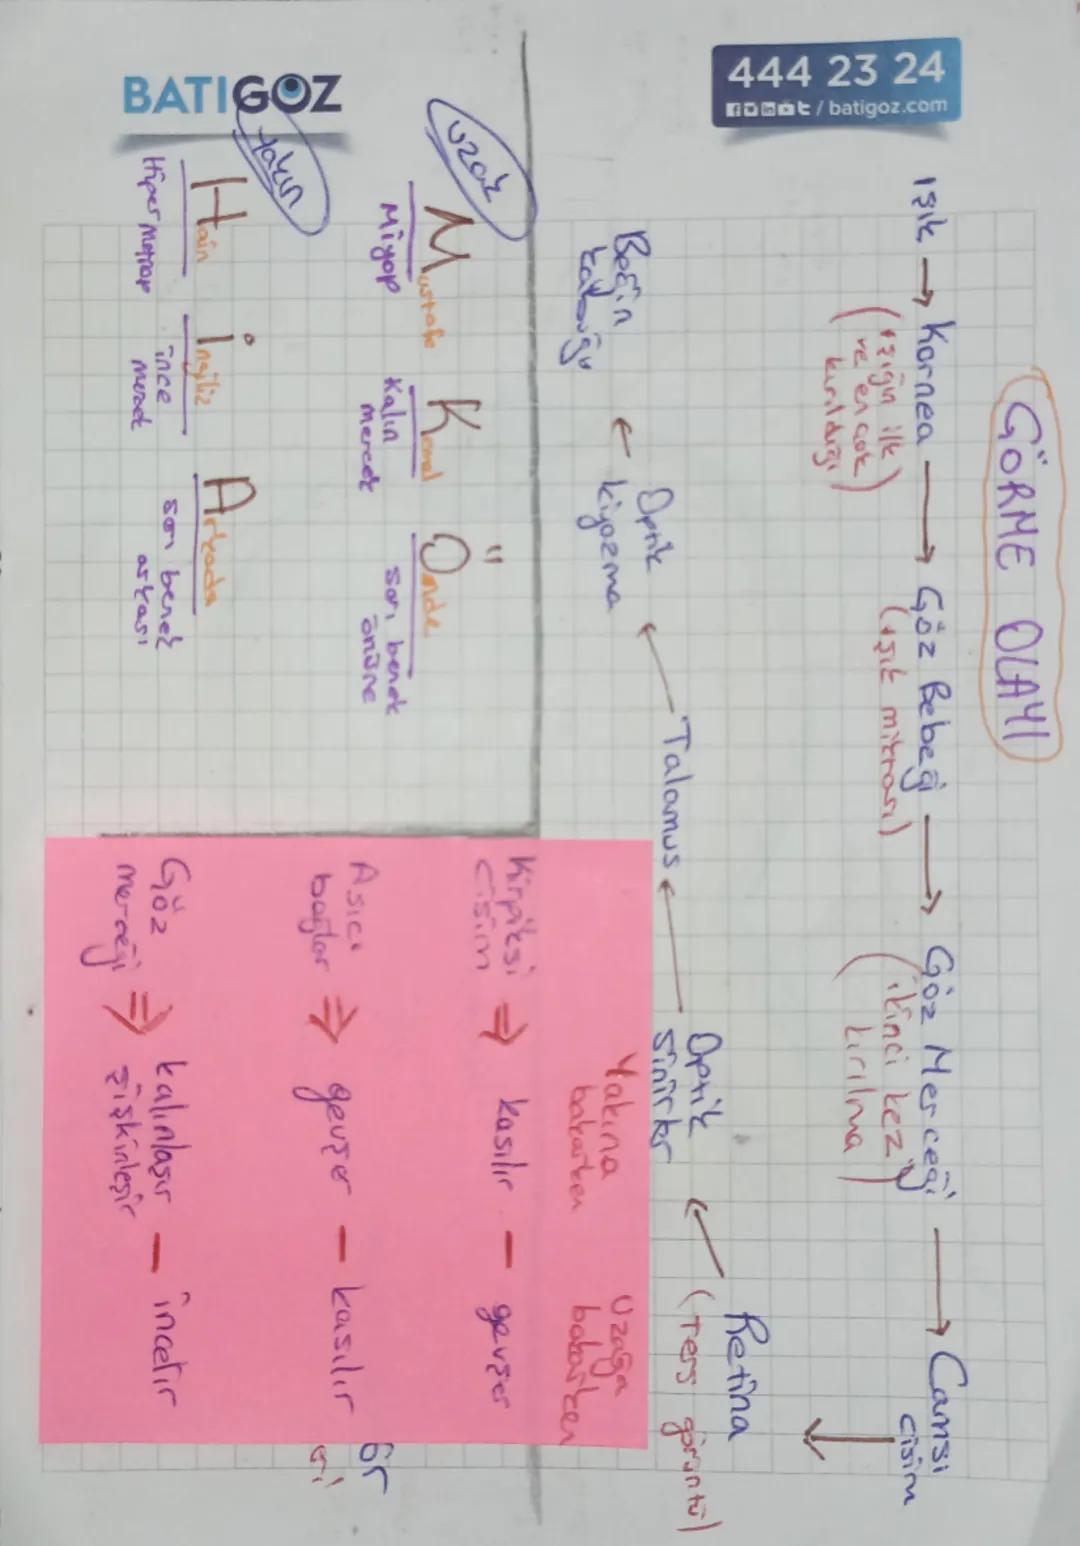 BATIGÖZ
444 23 24
/ batigoz.com
GÖRME OLAYI
Işık → Kornea → Göz Bebeği → Göz Merceği → Camsı
cisim
(ışığın ilk
ve en çok
kırıldığı)
(ışık miktarı)
(ikinci kez
kırılma)
Retina
(Ters görüntü)
Optik
sinirler
Talamus
Optik
kiyazma
Beğin
kabuğu
uzak
Mustafa Kemal Önde
Miyop
Kalın
mercek
sarı benek
önüne
yakın
Hain İngiliz Arkada
Hipermetrop
ince
mercek
sarı benek
arkası
Yakına
bakarken
Uzağa
bakarken
Kirpiksi
cisim
⇒ kasılır — gevşer
Asıcı
bağlar
⇒ gevşer — kasılır
Göz
merceği
⇒ kalınlaşır
şişkinleşir
— incelir
ör